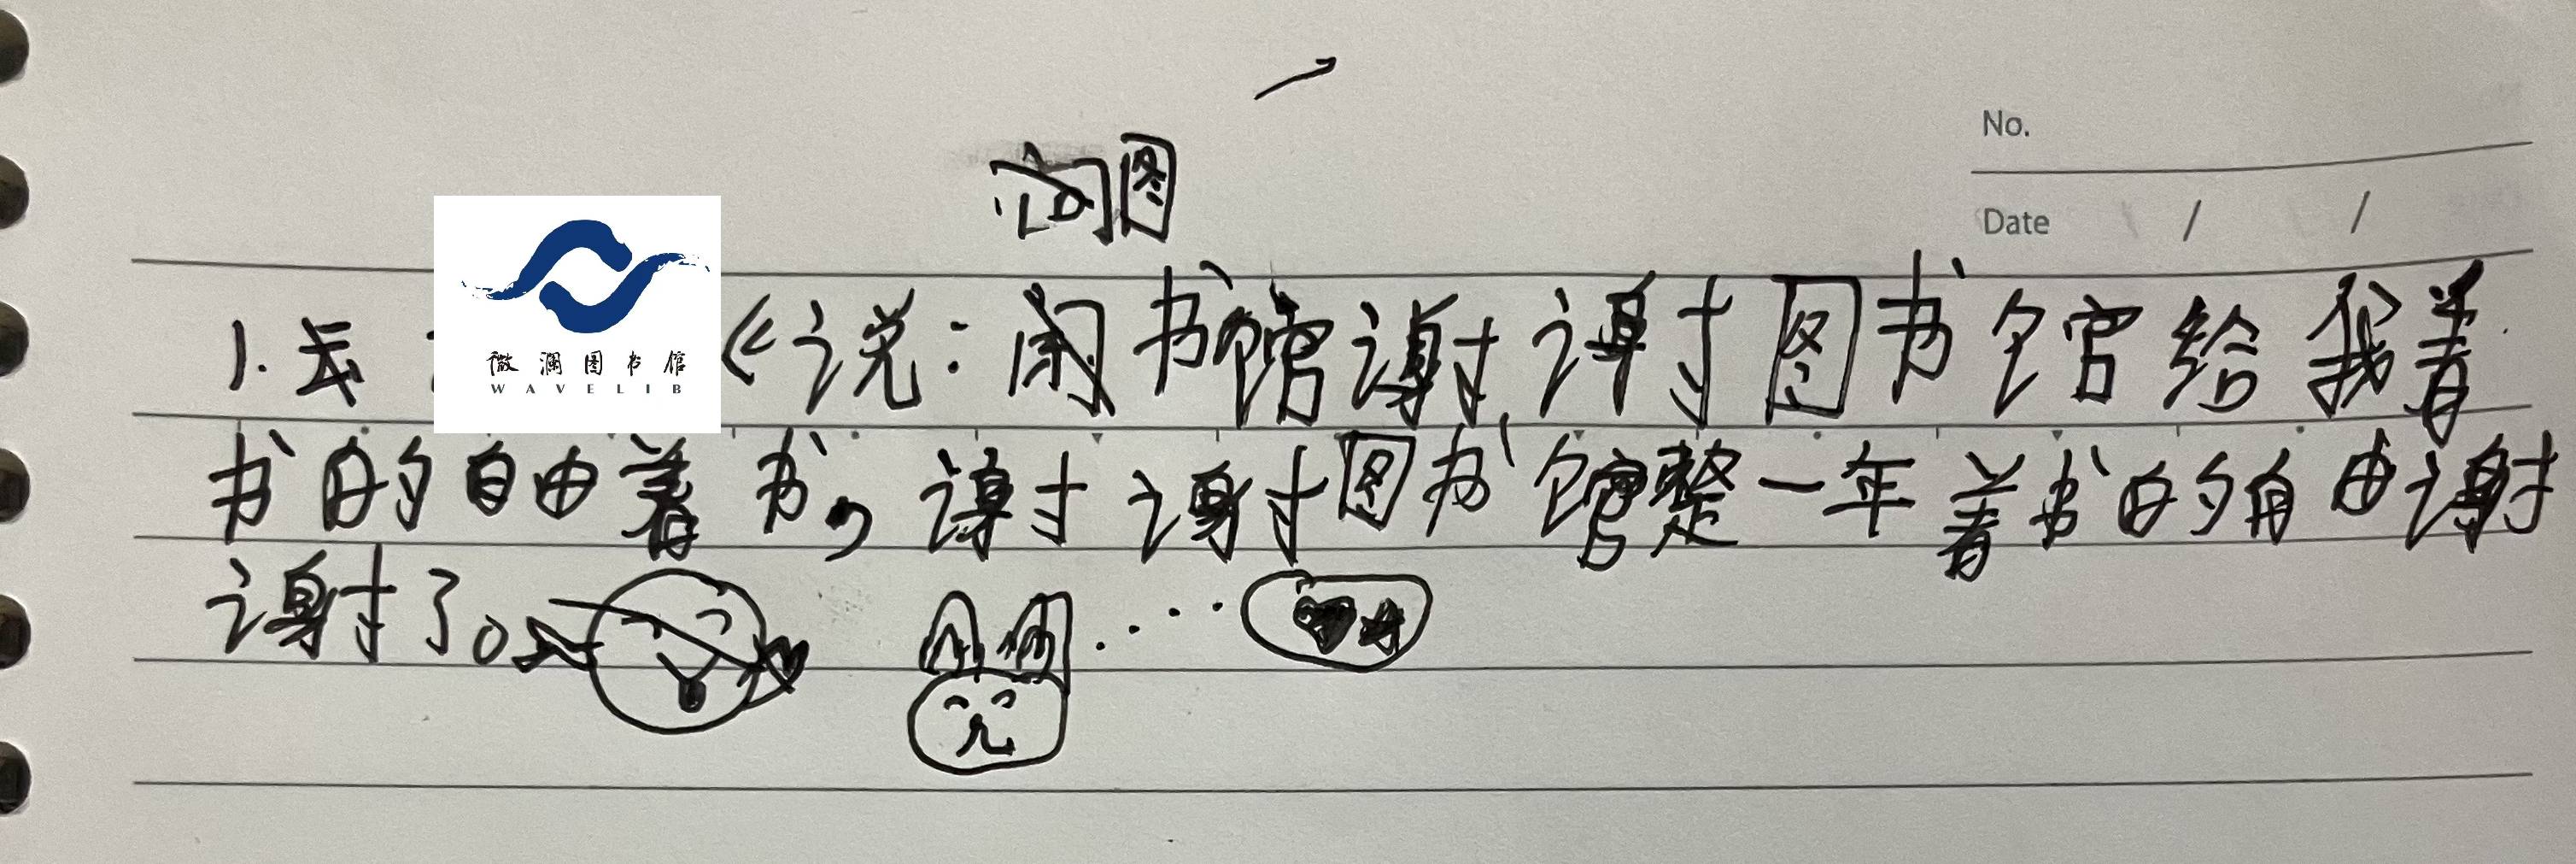 No.
图
Date / /
微澜图书馆
WAVELIB
1. 说：书馆谢谢图书馆给我着
书的自由着书，谢谢图书馆整一年着书的自由谢
谢了。